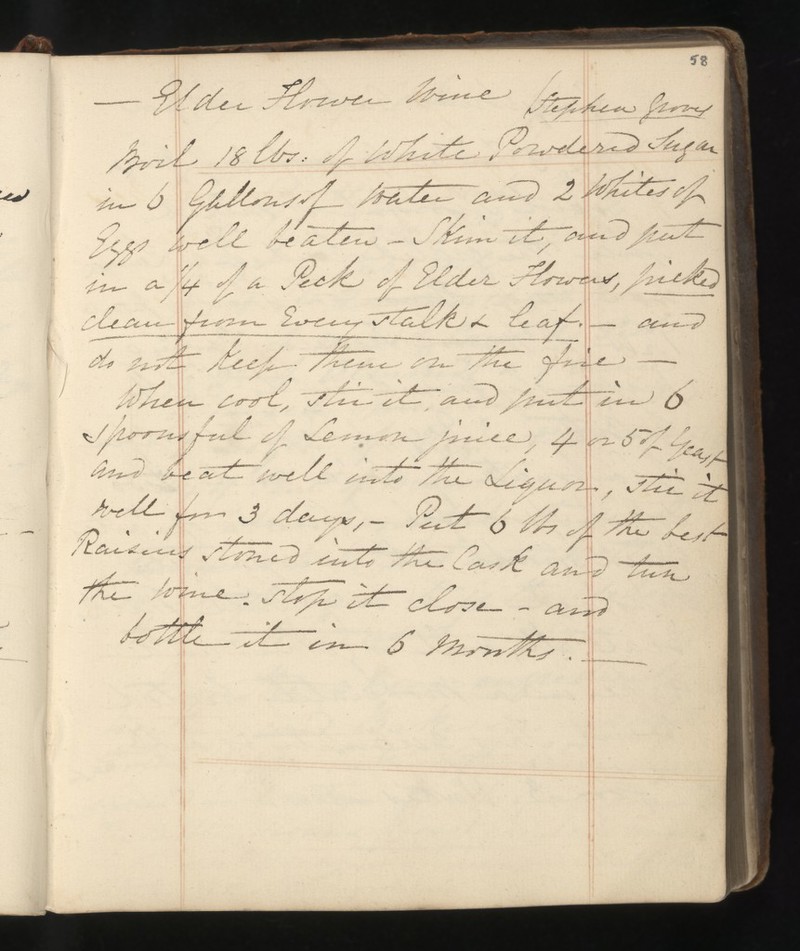 58
— Elder Flower Wine Stephen Grove
Boil 18 lbs: of White Powdered Sugar
in 6 Gallons of Water and 2 Whites of
Eggs well beaten – Skim it, and put
in a 1/4 of a Peck of Elder Flowers, picked
clean from Every stalk & leaf. – and
do not keep them on the fire –
When cool, stir it, and put in 6
spoonsful of Lemon juice, 4 or 5 of Yeast
and beat well into the Liquor, stir it
well for 3 days, – Put 6 lbs of the best
Raisins stoned into the Cask and tun
the wine. stop it close – and
bottle it in 6 Months. —